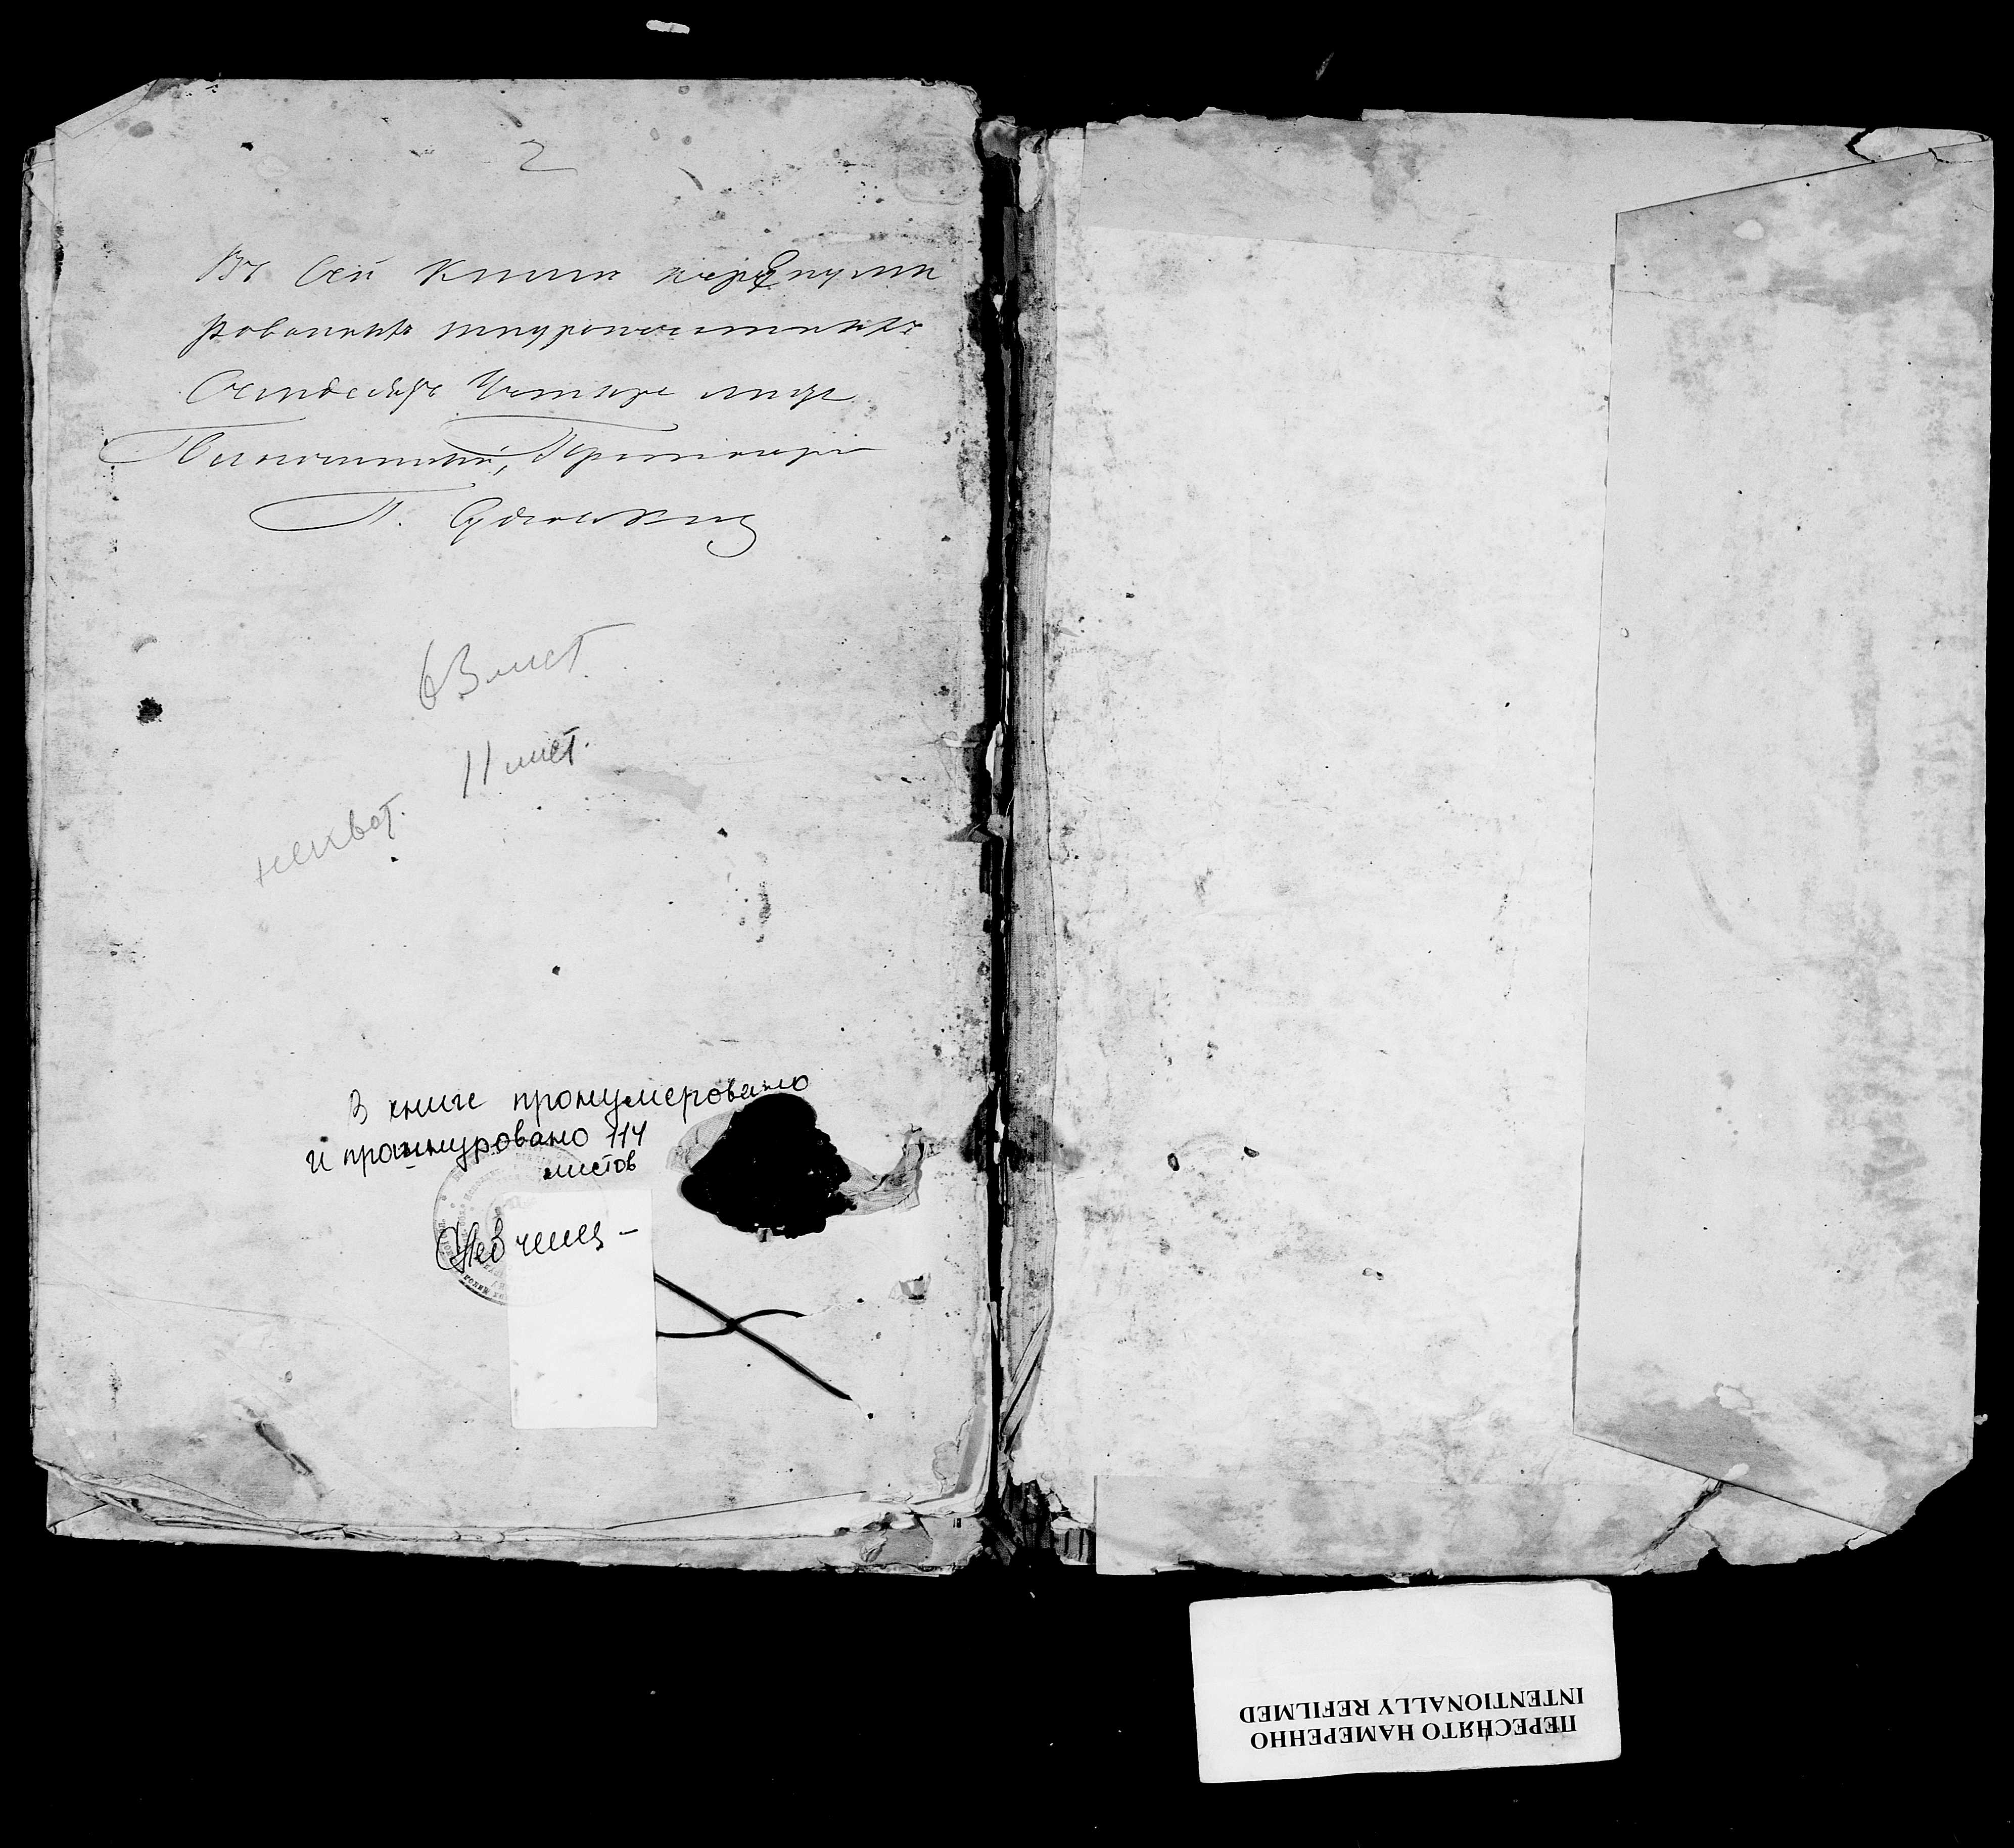 2
Въ сей книге перенуме
рованныхъ шнуропечатныхъ
Семдесятъ Четыре лис
Благочинный, Протоиерей
П.
63 лист.
11 лист.
нехват.
В книге пронумеровано
и прошнуровано 114
листов
ПЕРЕСНЯТО НАМЕРЕННО
INTENTIONALLY REFILMED